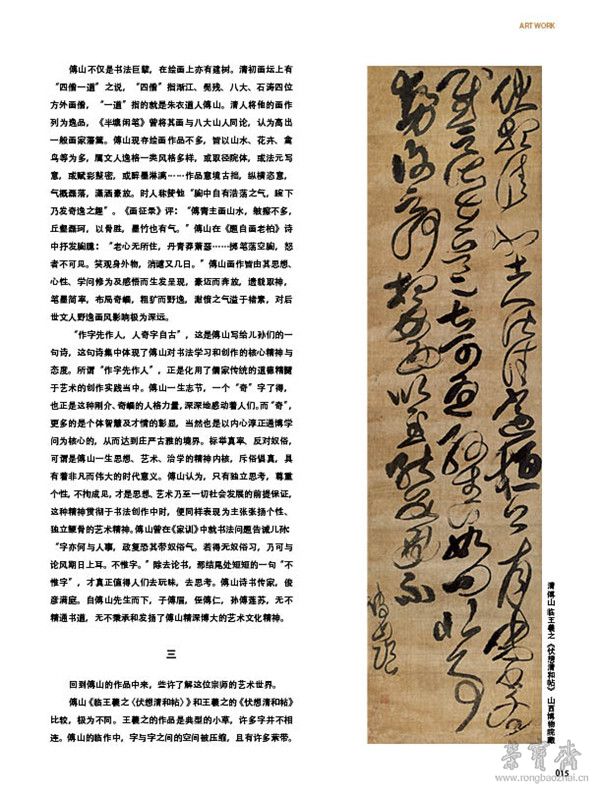 ART WORK
傅山不仅是书法巨擘，在绘画上亦有建树。清初画坛上有
“四僧一道”之说，“四僧”指渐江、髡残、八大、石涛四位
方外画僧，“一道”指的就是朱衣道人傅山。清人将他的画作
列为逸品，《半壤闲笔》曾将其画与八大山人同论，认为高出
一般画家藩篱。傅山现存绘画作品不多，皆以山水、花卉、禽
鸟等为多，属文人逸格一类风格多样，或取径院体，或法元写
意，或赋彩鬏密，或醉墨淋漓……作品意境古拙，纵横恣意，
气概磊落，潇洒豪放。时人称赞他“胸中自有浩荡之气，腕下
乃发奇逸之趣”。《画征录》评：“傅青主画山水，皴擦不多，
丘壑磊珂，以骨胜，墨竹也有气。”傅山在《题自画老柏》诗
中抒发胸臆：“老心无所住，丹青莽萧瑟……掷笔荡空胸，怒
者不可见。笑观身外物，消遣又几日。”傅山画作皆由其思想、
心性、学问修为及感悟而生发呈现，豪迈而奔放，遗貌取神，
笔墨简率，布局奇崛，粗犷而野逸，谢愤之气溢于楮素，对后
世文人野逸画风影响极为深远。
“作字先作人，人奇字自古”，这是傅山写给儿孙们的一
句诗，这句诗集中体现了傅山对书法学习和创作的核心精神与
态度。所谓“作字先作人”，正是化用了儒家传统的道德精髓
于艺术的创作实践当中。傅山一生志节，一个“奇”字了得，
也正是这种刚介、奇崛的人格力量，深深地感动着人们。而“奇”，
更多的是个体智慧及才情的彰显，当然也是以内心淳正通博学
问为核心的，从而达到庄严古雅的境界。标举真率、反对奴俗，
可谓是傅山一生思想、艺术、治学的精神内核，斥俗倡真，具
有着非凡而伟大的时代意义。傅山认为，只有独立思考，尊重
个性，不拘成见，才是思想、艺术乃至一切社会发展的前提保证，
这种精神贯彻于书法创作中时，便同样表现为主张张扬个性、
独立鲠骨的艺术精神。傅山曾在《家训》中就书法问题告诫儿孙：
“字亦何与人事，政复恐其带奴俗气。若得无奴俗习，乃可与
论风期日上耳。不惟字。”除去论书，那结尾处短短的一句“不
惟字”，才真正值得人们去玩味，去思考。傅山诗书传家，俊
彦满庭。自傅山先生而下，子傅眉，侄傅仁，孙傅莲苏，无不
精通书道，无不秉承和发扬了傅山精深博大的艺术文化精神。
三
回到傅山的作品中来，些许了解这位宗师的艺术世界。
傅山《临王羲之〈伏想清和帖〉》和王羲之的《伏想清和帖》
比较，极为不同。王羲之的作品是典型的小草，许多字并不相
连。傅山的临作中，字与字之间的空间被压缩，且有许多萦带。
清 傅山 临王羲之《伏想清和帖》 山西博物院藏
荣宝斋
www.rongbaozhai.cn
015